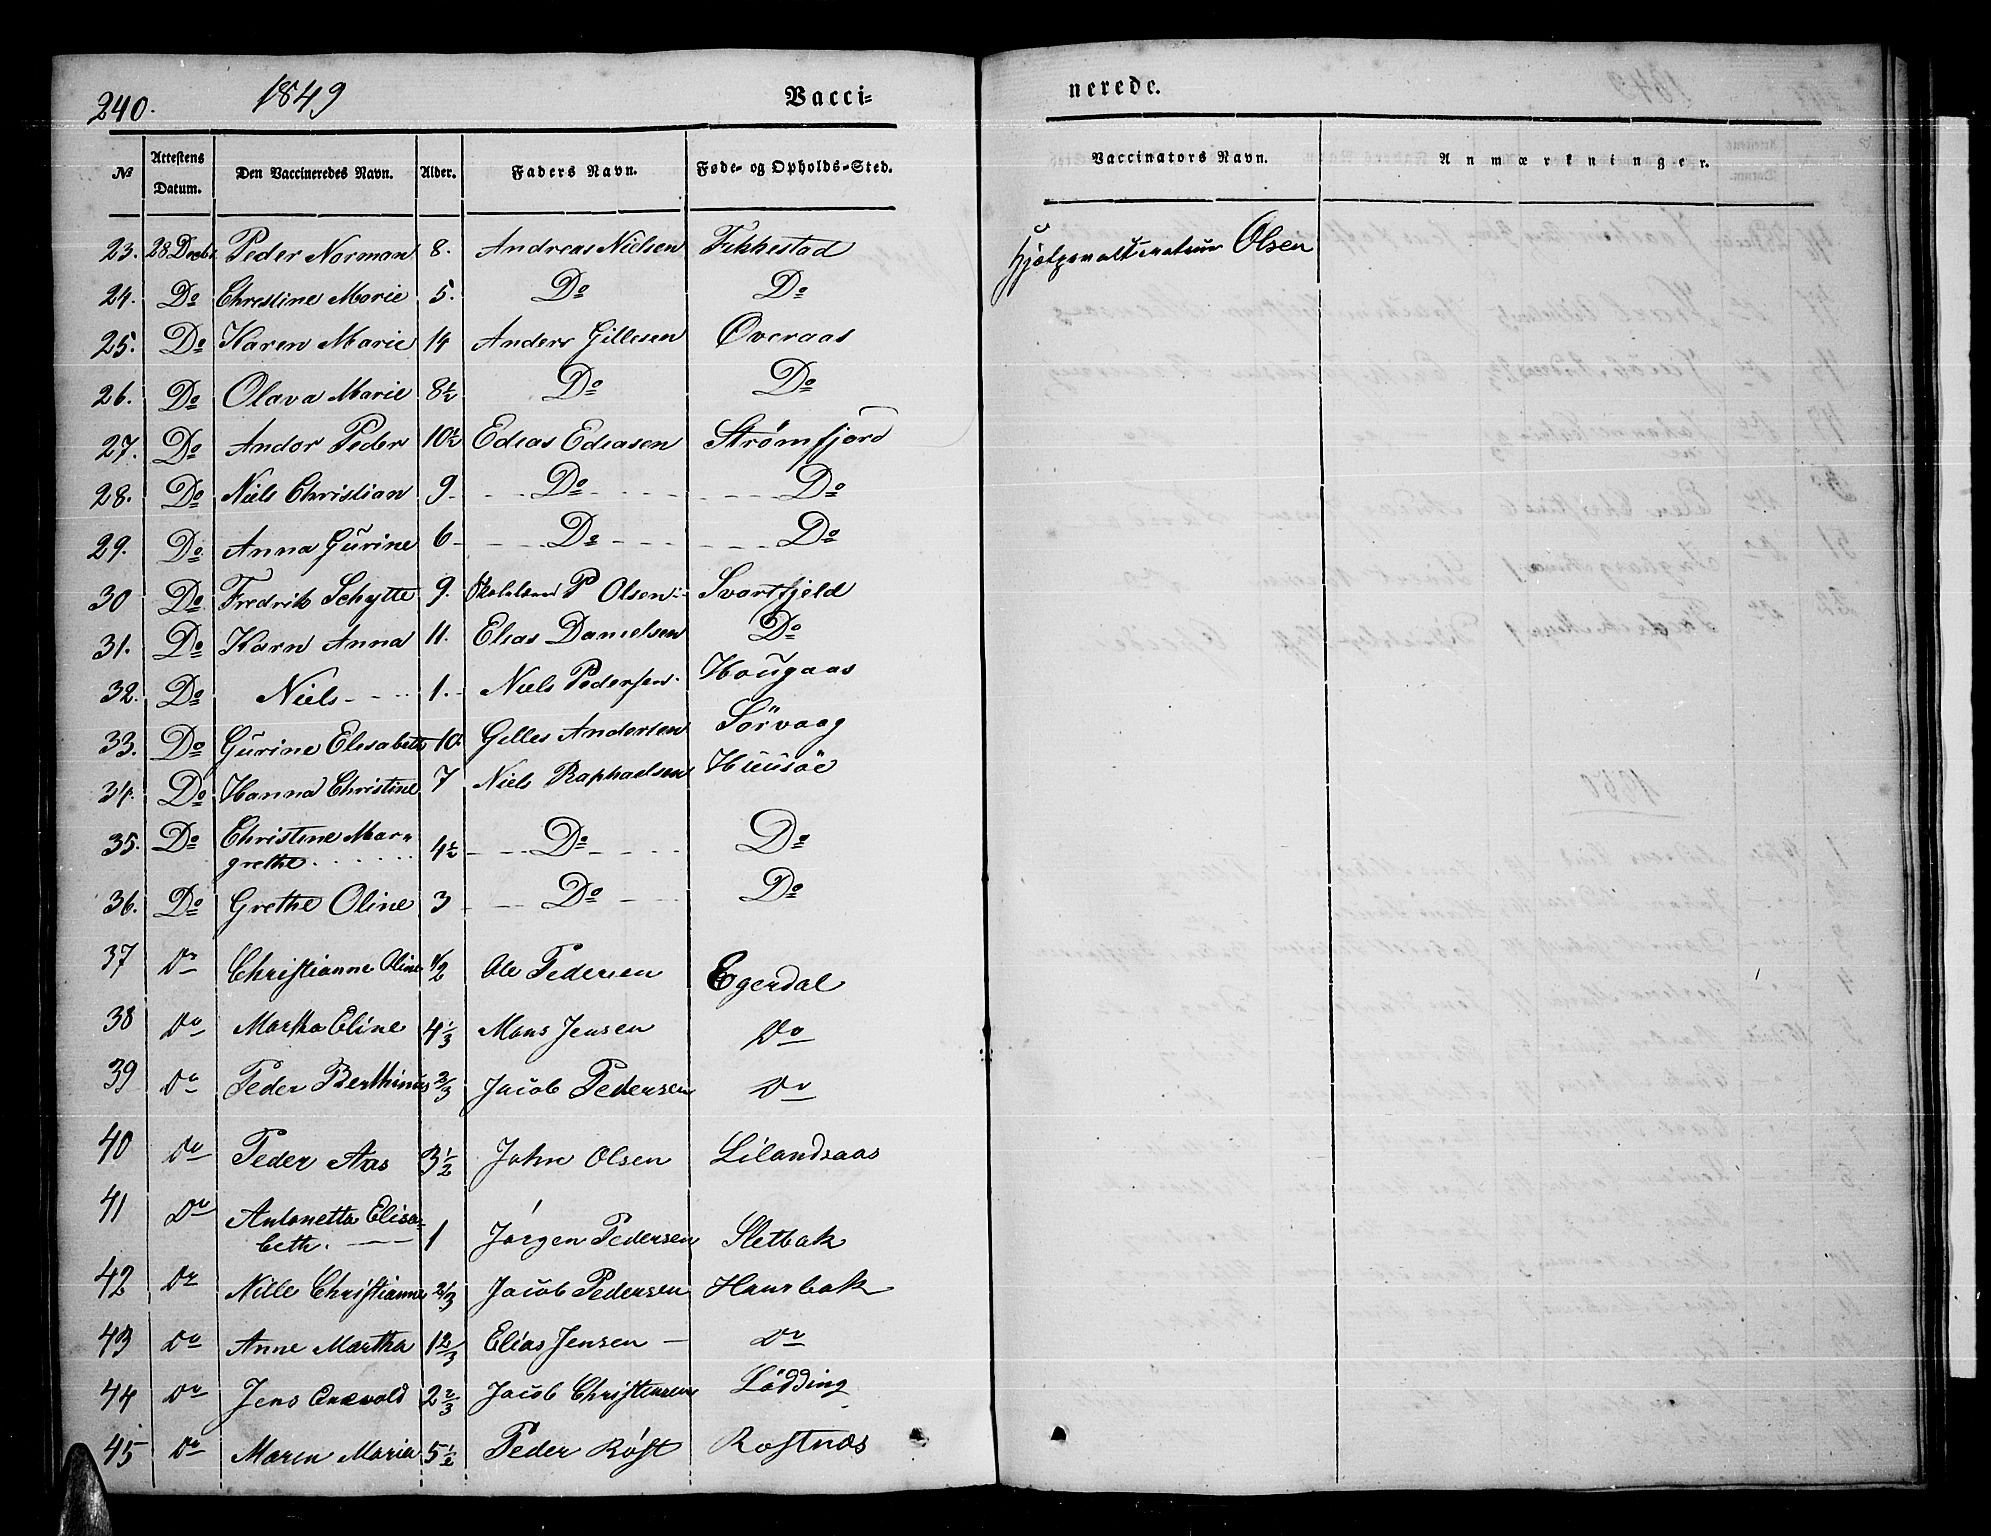 240. 1849 Vacci- nerede.
№ Attestens Datum. Den Vaccineredes Navn. Alder. Faders Navn. Føde- og Opholds-Sted. Vaccinators Navn. Anmærkninger.
23. 28 Decbr Peder Norman 8. Andreas Nielsen Fikkestad Hjælpevaccinateur Olsen
24. Do Christine Marie 5. Do Do
25. Do Karen Marie 14 Anders Gillesen Overaas
26. Do Olava Marie 8½ Do Do
27. Do Andor Peder 10½ Edias Ediasen Strømfjord
28. Do Niels Christian 9 Do Do
29. Do Anna Gurine 6 Do Do
30 Do Fredrik Schytte 9. P Olsen Svartfjeld
31. Do Karn Anna 11. Elias Danielsen Do
32. Do Niels 1. Niels Pedersen Hougaas
33. Do Gurine Elisabeth 10. Gilles Andersen Sörvaag
34. Do Hanna Christine 7 Niels Raphaelsen Huusöe
35. Do Christine Mar-
grethe 4½ Do Do
36. Do Grethe Oline 3 Do Do
37 Do Christianne Oline ½ Ole Pedersen Egerdal
38 Do Martha Eline 4⅓ Mons Jensen Do
39 Do Peder Berthinus ⅔ Jacob Pedersen Do
40 Do Peder Aas 3½ John Olsen Lilandsaas
41 Do Antonetta Elisa-
beth. 1 Jørgen Pedersen Sletbak
42 Do Nille Christianne ⅔ Jacob Pedersen Haurbak
43 Do Anne Martha 1⅔ Elias Jensen Do
44 Do Jens 2⅔ Jacob Christensen Lödding
45 Do Maren Maria 5½ Peder Røst Rostnæs